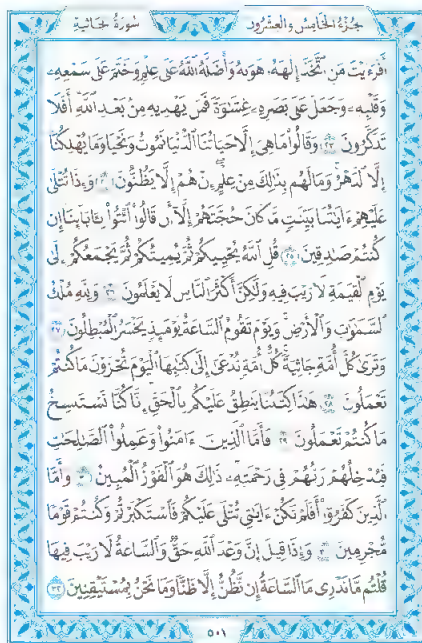 سُورَةُ الجَاثِيَةِ
الجُزْءُ الخَامِسُ وَالعِشْرُونَ
أَفَرَءَيْتَ مَنِ ٱتَّخَذَ إِلَٰهَهُۥ هَوَىٰهُ وَأَضَلَّهُ ٱللَّهُ عَلَىٰ عِلْمٍ وَخَتَمَ عَلَىٰ سَمْعِهِۦ
وَقَلْبِهِۦ وَجَعَلَ عَلَىٰ بَصَرِهِۦ غِشَٰوَةً فَمَن يَهْدِيهِ مِنۢ بَعْدِ ٱللَّهِ أَفَلَا
تَذَكَّرُونَ ٢٣ وَقَالُوا۟ مَا هِىَ إِلَّا حَيَاتُنَا ٱلدُّنْيَا نَمُوتُ وَنَحْيَا وَمَا يُهْلِكُنَآ
إِلَّا ٱلدَّهْرُ وَمَا لَهُم بِذَٰلِكَ مِنْ عِلْمٍ إِنْ هُمْ إِلَّا يَظُنُّونَ ٢٤ وَإِذَا تُتْلَىٰ
عَلَيْهِمْ ءَايَٰتُنَا بَيِّنَٰتٍ مَّا كَانَ حُجَّتَهُمْ إِلَّآ أَن قَالُوا۟ ٱئْتُوا۟ بِـَٔابَآئِنَآ إِن
كُنتُمْ صَٰدِقِينَ ٢٥ قُلِ ٱللَّهُ يُحْيِيكُمْ ثُمَّ يُمِيتُكُمْ ثُمَّ يَجْمَعُكُمْ إِلَىٰ
يَوْمِ ٱلْقِيَٰمَةِ لَا رَيْبَ فِيهِ وَلَٰكِنَّ أَكْثَرَ ٱلنَّاسِ لَا يَعْلَمُونَ ٢٦ وَلِلَّهِ مُلْكُ
ٱلسَّمَٰوَٰتِ وَٱلْأَرْضِ وَيَوْمَ تَقُومُ ٱلسَّاعَةُ يَوْمَئِذٍ يَخْسَرُ ٱلْمُبْطِلُونَ ٢٧
وَتَرَىٰ كُلَّ أُمَّةٍ جَاثِيَةً كُلُّ أُمَّةٍ تُدْعَىٰٓ إِلَىٰ كِتَٰبِهَا ٱلْيَوْمَ تُجْزَوْنَ مَا كُنتُمْ
تَعْمَلُونَ ٢٨ هَٰذَا كِتَٰبُنَا يَنطِقُ عَلَيْكُم بِٱلْحَقِّ إِنَّا كُنَّا نَسْتَنسِخُ
مَا كُنتُمْ تَعْمَلُونَ ٢٩ فَأَمَّا ٱلَّذِينَ ءَامَنُوا۟ وَعَمِلُوا۟ ٱلصَّٰلِحَٰتِ
فَيُدْخِلُهُمْ رَبُّهُمْ فِى رَحْمَتِهِۦ ذَٰلِكَ هُوَ ٱلْفَوْزُ ٱلْمُبِينُ ٣٠ وَأَمَّا
ٱلَّذِينَ كَفَرُوٓا۟ أَفَلَمْ تَكُنْ ءَايَٰتِى تُتْلَىٰ عَلَيْكُمْ فَٱسْتَكْبَرْتُمْ وَكُنتُمْ قَوْمًا
مُّجْرِمِينَ ٣١ وَإِذَا قِيلَ إِنَّ وَعْدَ ٱللَّهِ حَقٌّ وَٱلسَّاعَةُ لَا رَيْبَ فِيهَا
قُلْتُم مَّا نَدْرِى مَا ٱلسَّاعَةُ إِن نَّظُنُّ إِلَّا ظَنًّا وَمَا نَحْنُ بِمُسْتَيْقِنِينَ ٣٢
٥٠١